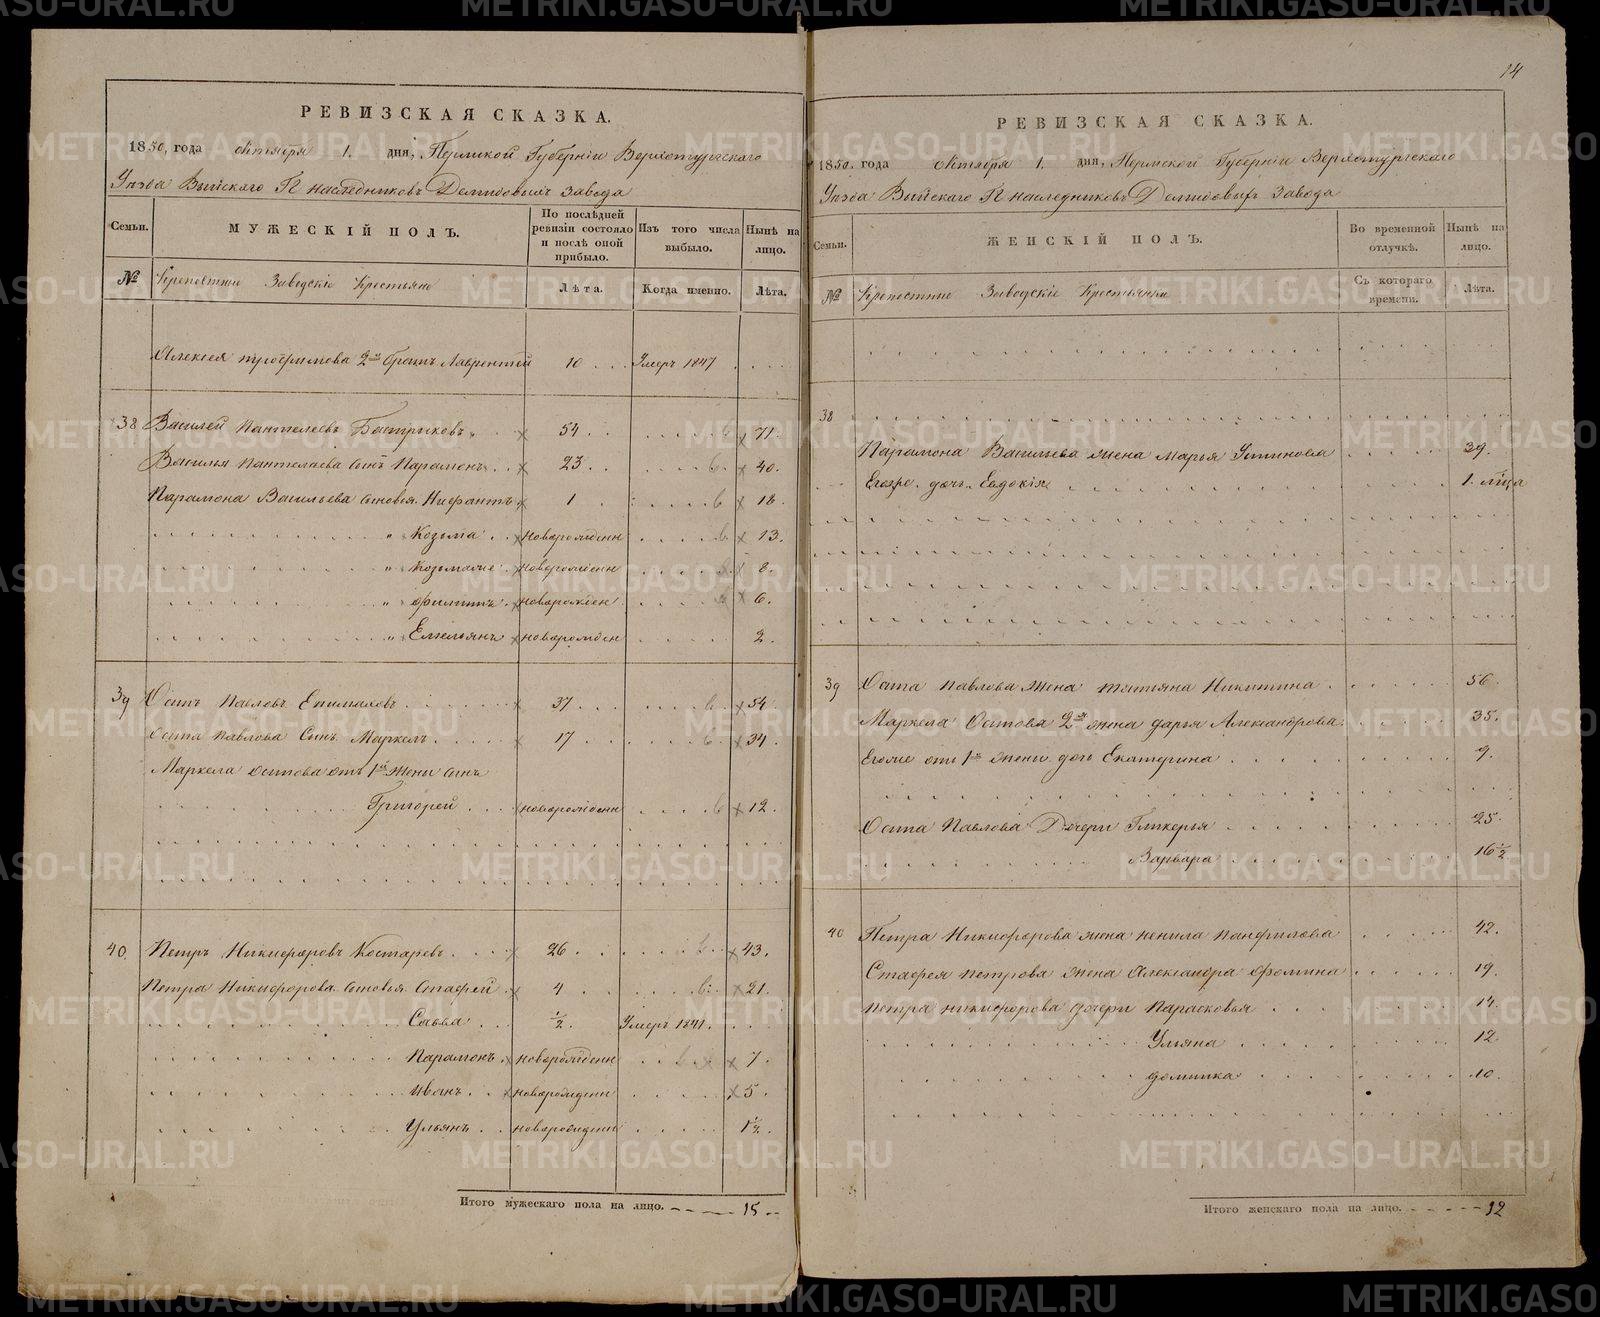 РЕВИЗСКАЯ СКАЗКА.
1850, года октября 1. дня, Пермской Губерніи Верхотурскаго
Уезда Выйскаго Гг наследниковъ Демидовыхъ завода
Семьи. МУЖЕСКІЙ ПОЛЪ. По послѣдней ревизіи состояло и послѣ оной прибыло. Изъ того числа выбыло. Нынѣ на лицо.
№ Крепостные Заводскіе Крестьяне Лѣта. Когда именно. Лѣта.
Алексея трофимова 2й братъ Лаврентей 10 Умеръ 1847
38 Василей Пантелеевъ Бастрыковъ 54 71.
Василья Пантелеева сынъ Парамонъ 23 40.
Парамона Васильева сыновья Нифантъ 1 18.
Козьма новорожденн 13.
Козьма же новорожденн 8.
Филипъ новорожден 6.
Емельянъ новорожден 2.
39 Осипъ Павловъ 37 54
Осипа Павлова Сынъ Маркелъ 17 34
Маркела осипова отъ 1й жены сынъ
Григорей новорожденн 12.
40. Петръ Никифоровъ Костаревъ 26 43.
Петра Никифорова сыновья Стафей 4 21.
Савва 1/2 Умеръ 1841.
Парамонъ новорожденн 7.
Иванъ новорожденн 5.
Ульянъ новорожденн 1 1/2.
Итого мужескаго пола на лицо. 15
14
РЕВИЗСКАЯ СКАЗКА.
1850. года октября 1. дня, Пермской Губерніи Верхотурскаго
Уезда Выйскаго Гг наследниковъ Демидовыхъ Завода
Семьи. ЖЕНСКІЙ ПОЛЪ. Во временной отлучкѣ. Нынѣ на лицо.
№ Крепостные Заводскіе Крестьянки Съ котораго времени. Лѣта.
38
Парамона Васильева жена Марья Устинова 39.
Егоже дочь Евдокія 1. м̄ца
39 Осипа Павлова жена татьяна Никитина 56.
Маркела Осипова 2я жена дарья Александрова 35.
Егоже отъ 1й жены дочь Екатерина 9.
Осипа Павлова Дочери Гликерья 25.
Варвара 16 1/2
40 Петра Никифорова жена ненила панфилова 42.
Стафея петрова жена Александра Фомина 19.
петра никифорова дочери Парасковья 14.
Ульяна 12
домника 10.
Итого женскаго пола на лицо. 12
METRIKI.GASO-URAL.RU